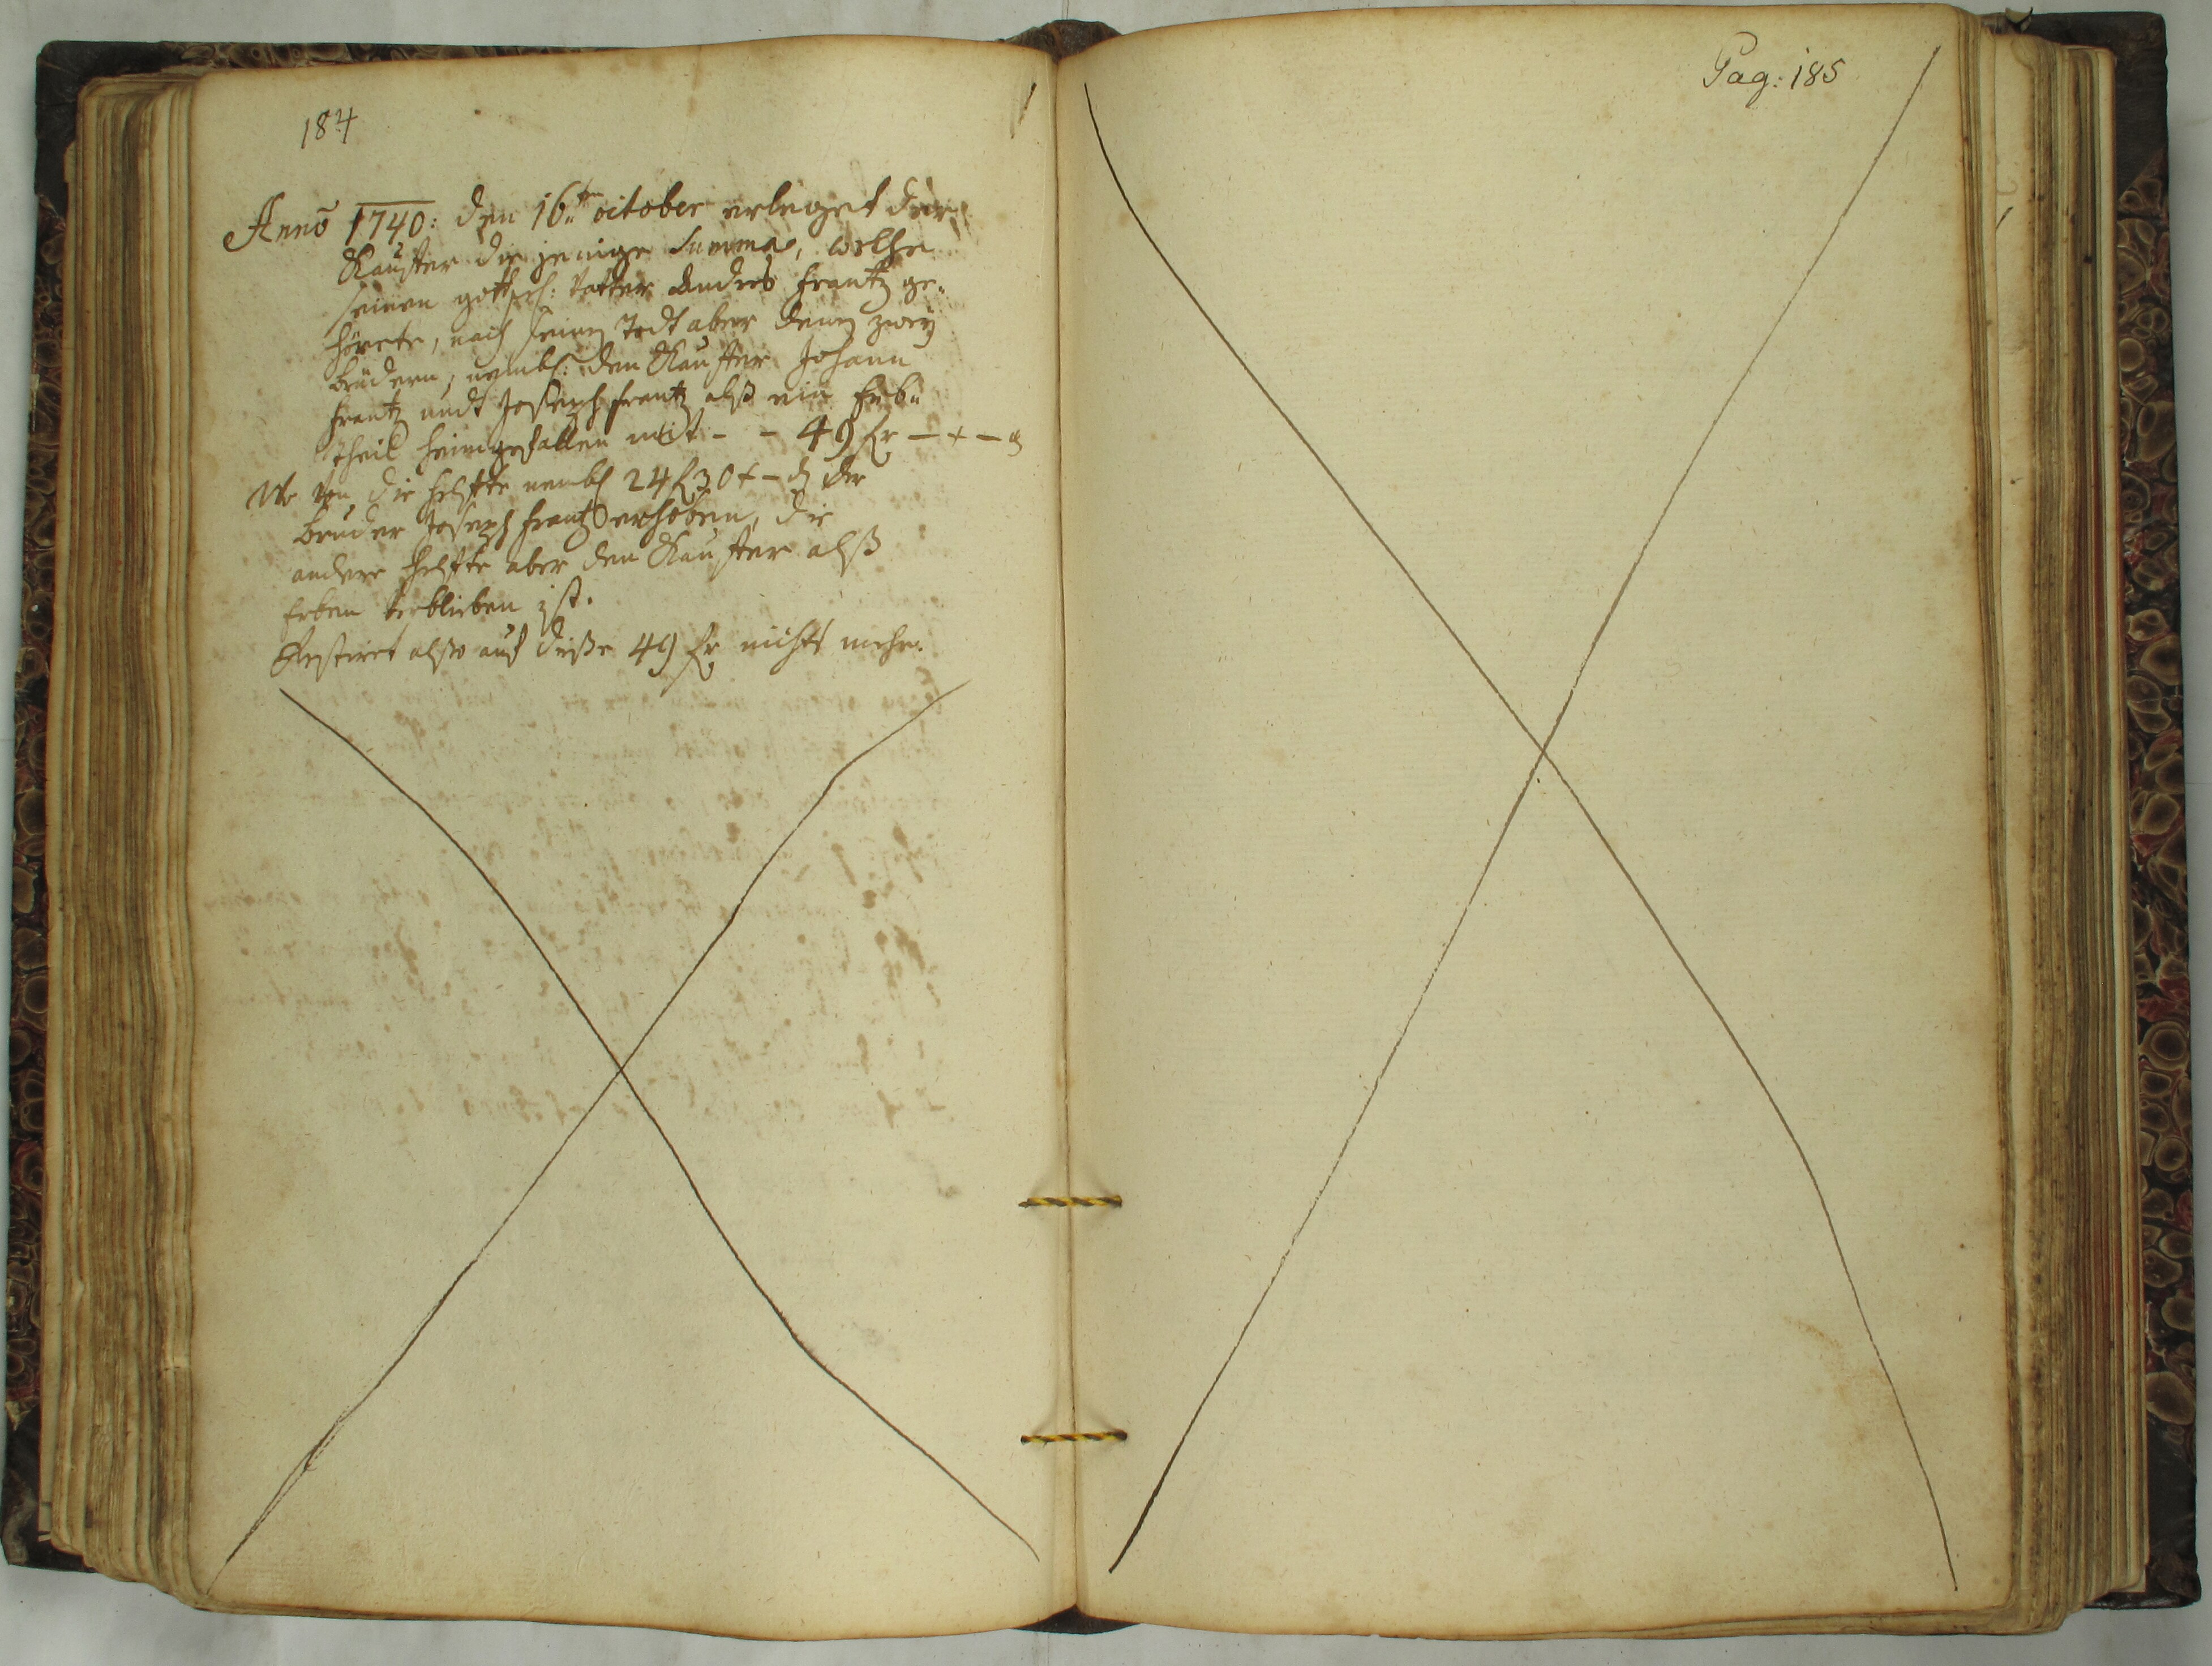 184
Pag: 185
Anno 1740: den 16ten october erleget der
Kauffer die jenige Summa, welche
seinen gottseel: Vatter Andres Frantz ge-
hörete, nach seinen Todt aber denen zwey
Brüdern, nembl: den Kauffer Johann
Frantz undt Joseph Frantz alß ein Erb-
theil heimgefallen mit - - 49 fl - x - d
Wo von die helffte nembl 24 fl 30 x - d der
Bruder Joseph Frantz erhoben, die
andere helffte aber den Kauffer alß
Erben verblieben ist.
Restiret also auf diese 49 fl nichts mehr.